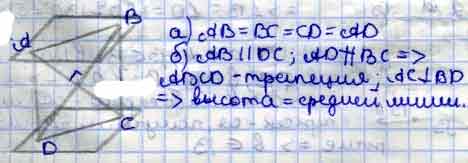 B
A
C
D
а) AB = BC = CD = AD
б) AB || DC; AD ∦ BC =>
ABCD - трапеция; AC ⊥ BD
=> высота = средней линии.